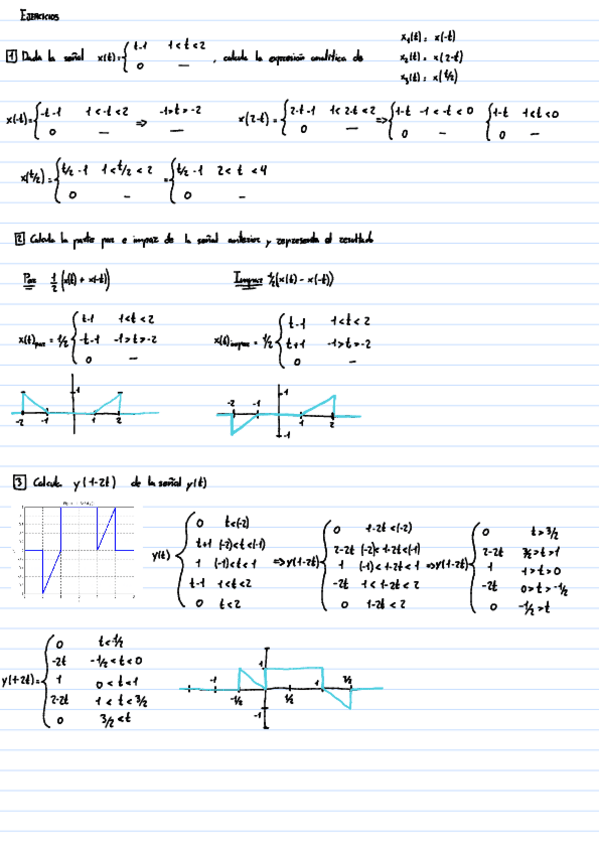 EJERCICIOS
x₁(t) = x(-t)
1 Dada la señal x(t)= { t-1 1<t<2 , calcula la expresión analítica de x₂(t) = x(2-t)
0 — x₃(t) = x(t/2)
x(-t)= { -t-1 1<-t<2 ⇒ -1>t>-2 x(2-t) = { 2-t-1 1<2-t<2 ⇒ { 1-t -1<-t<0 { 1-t 1<t<0
0 — — 0 — 0 — 0 —
x(t/2) = { t/2-1 1<t/2<2 = { t/2-1 2<t<4
0 — 0 —
2 Calcula la parte par e impar de la señal anterior y representa el resultado
Par 1/2 (x(t) + x(-t)) Impar 1/2 (x(t) - x(-t))
x(t)par = 1/2 { t-1 1<t<2 x(t)impar = 1/2 { t-1 1<t<2
-t-1 -1>t>-2 t+1 -1>t>-2
0 — 0 —
1 1
-2 -1 1 2 -2 -1 1 2
-1
3 Calcula y(1-2t) de la señal y(t)
y(t) { 0 t<(-2) ⇒ y(1-2t) { 0 1-2t<(-2) ⇒ y(1-2t) { 0 t>3/2
t+1 (-2)<t<(-1) 2-2t (-2)<1-2t<(-1) 2-2t 3/2>t>1
1 (-1)<t<1 1 (-1)<1-2t<1 1 1>t>0
t-1 1<t<2 -2t 1<1-2t<2 -2t 0>t>-1/2
0 t<2 0 1-2t<2 0 -1/2>t
y(1-2t)= { 0 t<-1/2
-2t -1/2<t<0
1 0<t<1
2-2t 1<t<3/2
0 3/2<t
1
-1 -1/2 1/2 1 3/2
-1